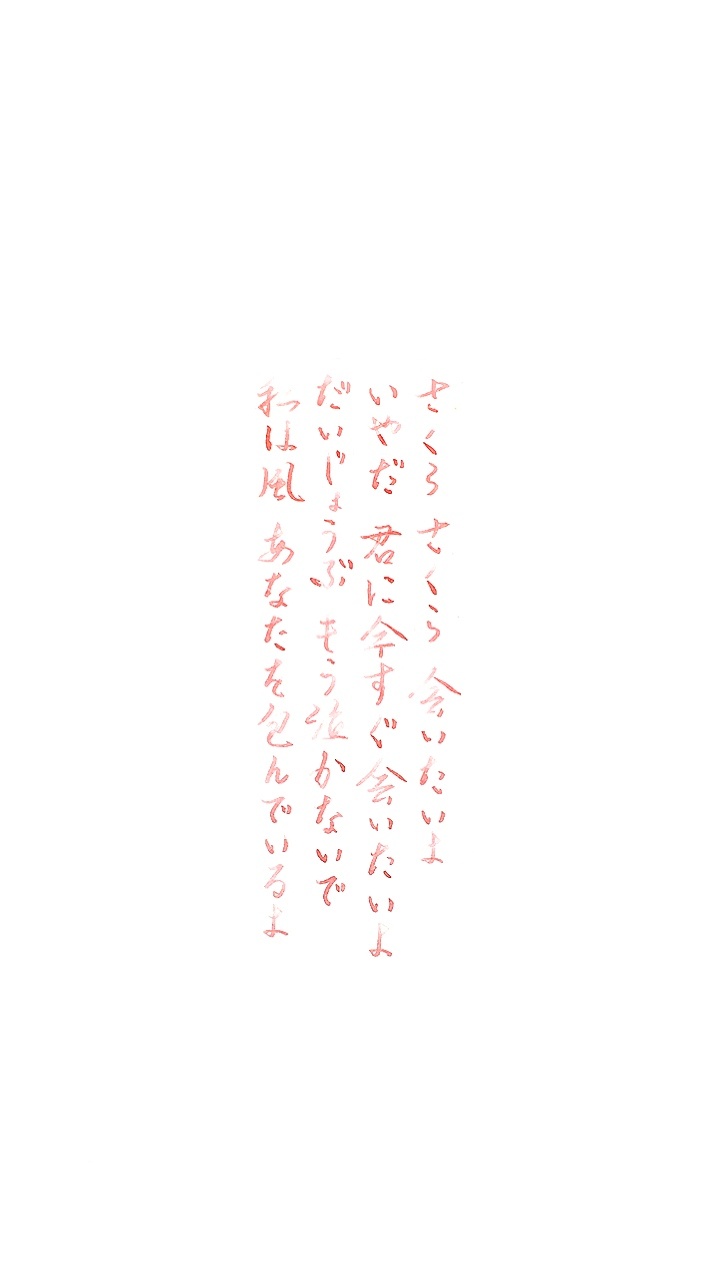 さくら さくら 会いたいよ
いやだ 君に今すぐ会いたいよ
だいじょうぶ もう泣かないで
私は風 あなたを包んでいるよ